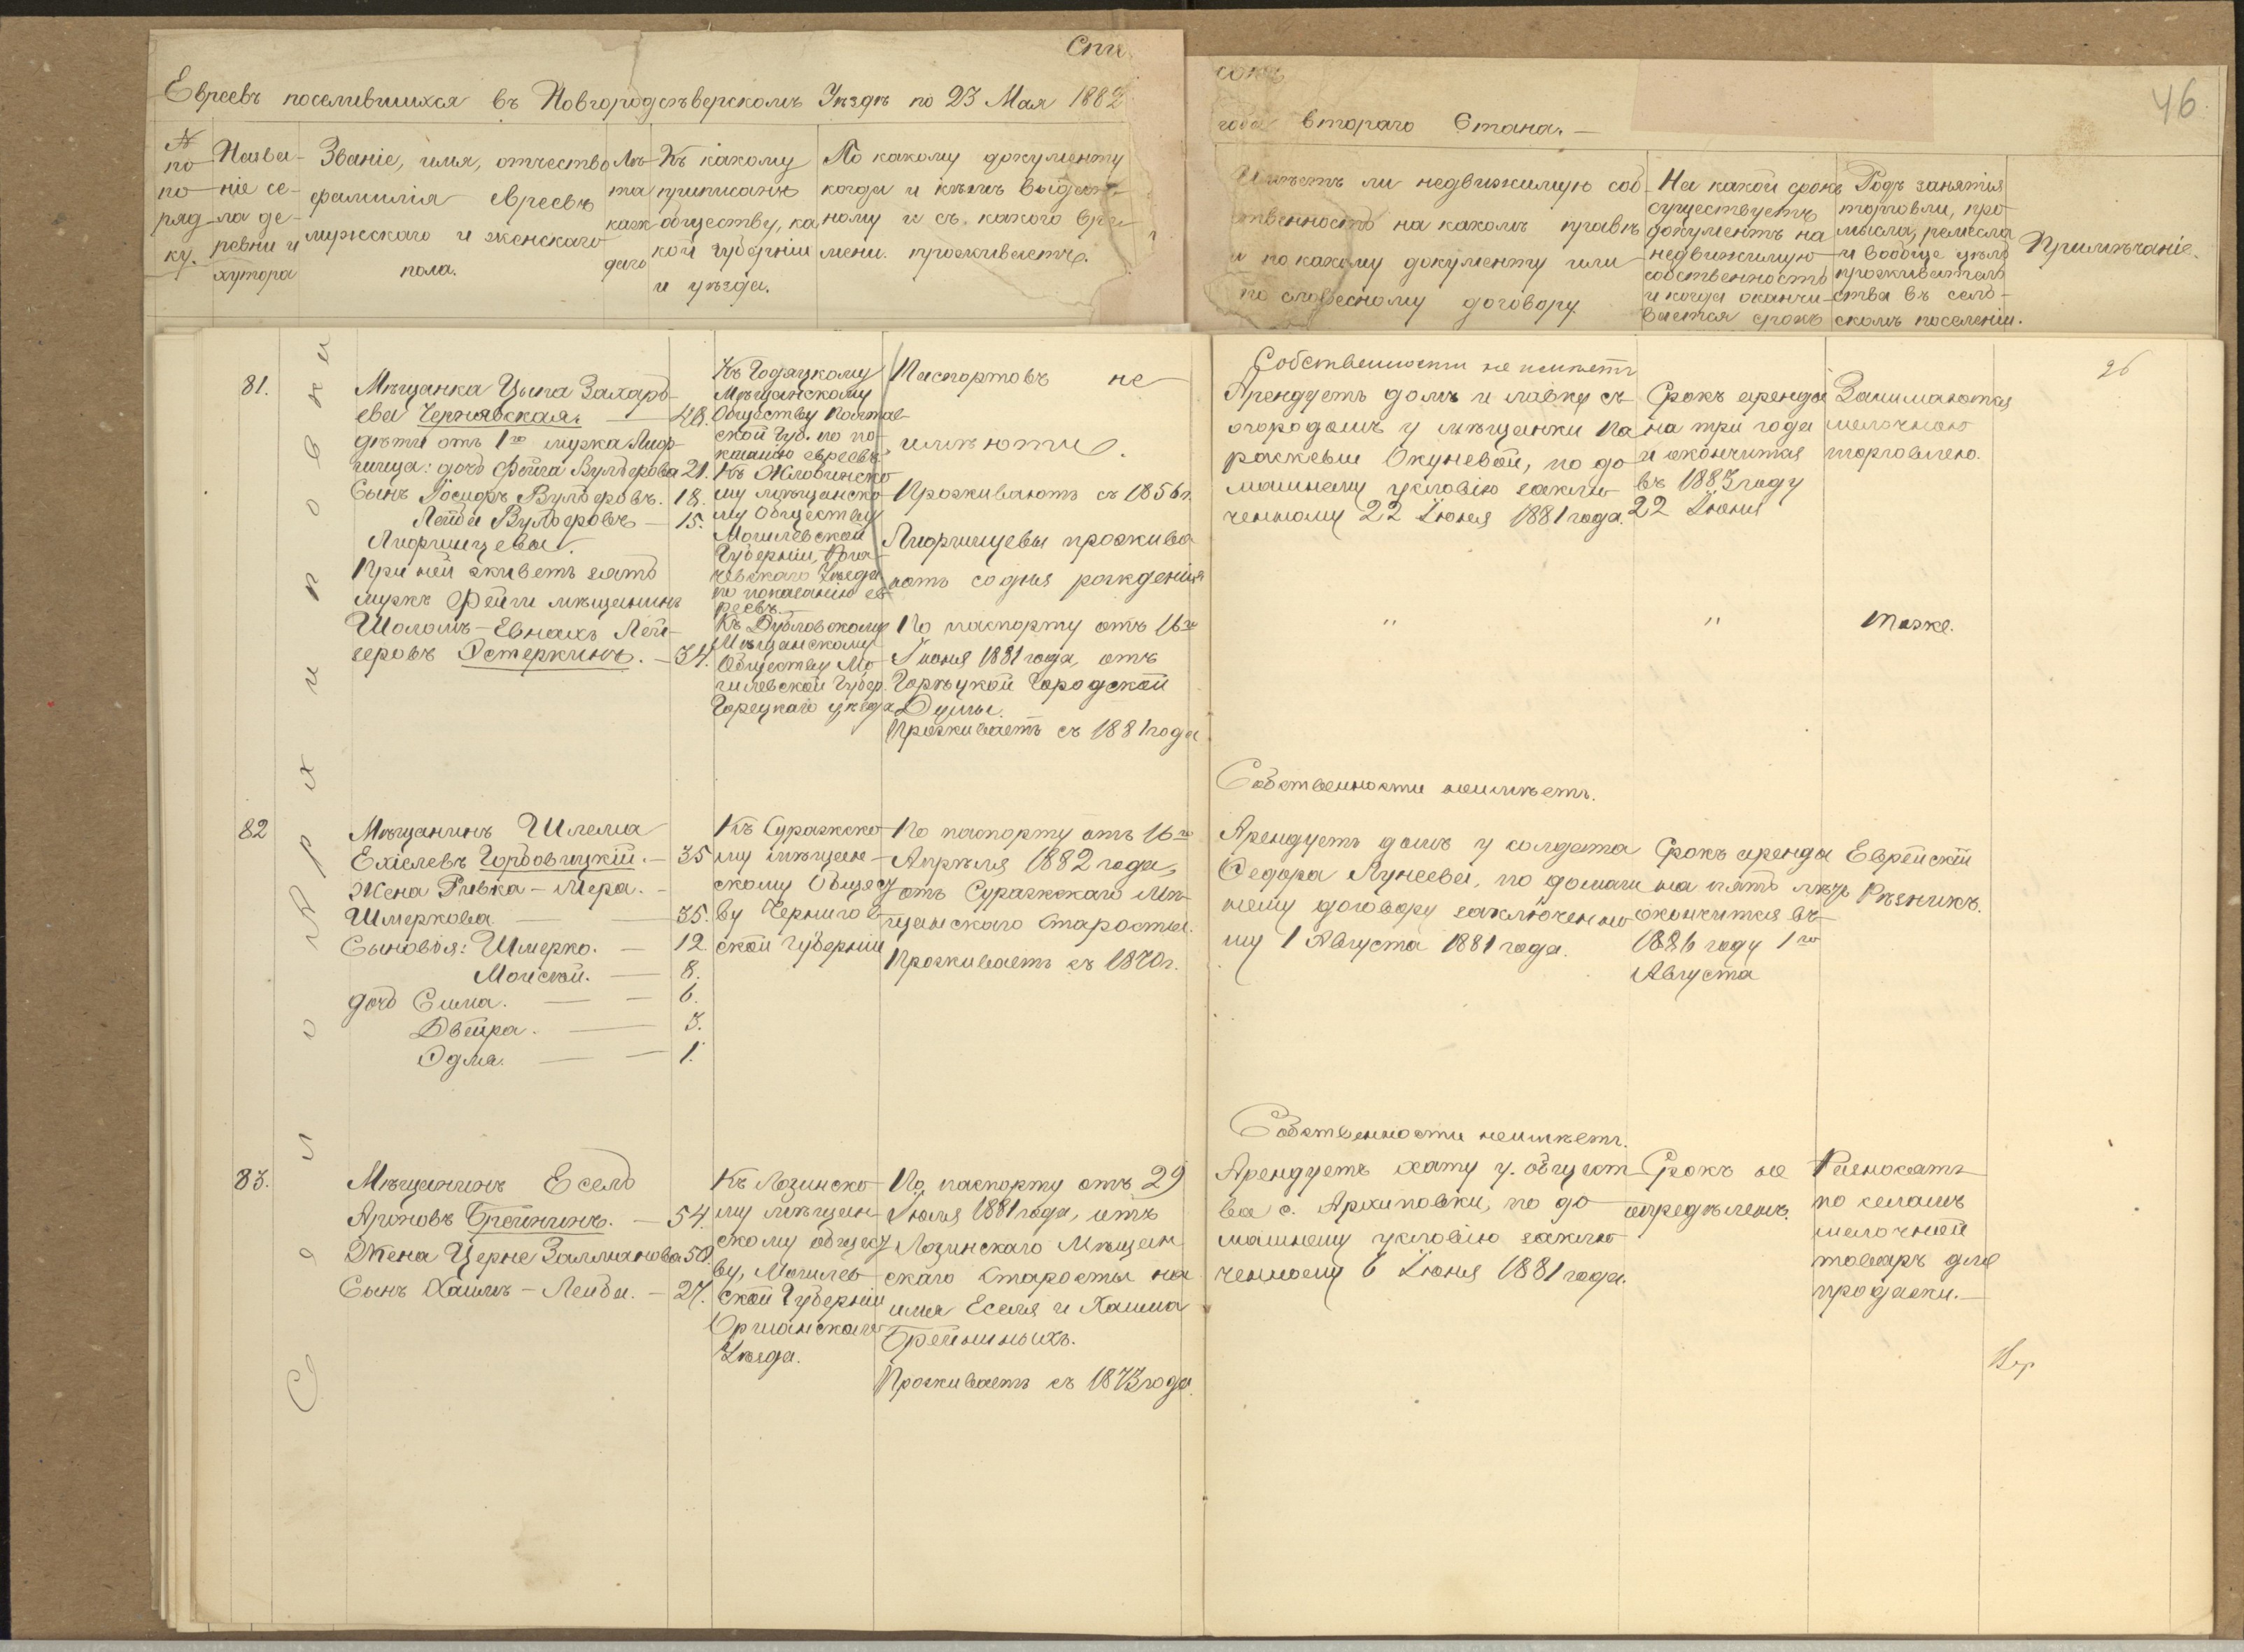 Спи
сокъ
Евреевъ поселившихся въ Новгородсѣверскомъ Уѣздѣ по 23 Мая 1882
года втораго Стана. —
46
№
по
по
ряд
ку.
Назва-
ніе се-
ла де-
ревни и
хутора
Званіе, имя, отчество
фамилія евреевъ
мужскаго и женскаго
пола.
Лѣ
та
каж
даго
Къ какому
приписанъ
обществу, ка
кой губерніи
и уѣзда.
По какому документу
когда и кѣмъ выдан-
ному и съ какого вре
мени проживаетъ.
Имѣетъ ли недвижимую соб
ственность на какомъ правѣ
и по какому документу или
по словесному договору
На какой срокъ
существуетъ
документъ на
недвижимую
собственность
и когда оканчи-
вается срокъ
Родъ занятія
торговли, про
мысла, ремесла
и вообще цѣль
проживатель
ства въ сель-
скомъ поселеніи.
Примѣчаніе.
26
Село Архиповки
81.
Мѣщанка Цыпа Захарь
ева Чернявская. — 48.
дѣти отъ 1го мужа Лиор-
гинца: дочь Фейга Вульфова 21.
Сынъ Іосифъ Вульфовъ. 18.
Лейба Вульфовъ — 15.
При ней живетъ зять
мужъ Фейги мѣщанинъ
Шоломъ-Евнахъ Лей-
зеровъ Остеркинъ. — 34.
Къ Годяцкому
Мѣщанскому
Обществу Полтав
ской Губ. по по-
казанію евреевъ
Къ Жловинско
му мѣщанско-
му Обществу
Могилевской
Губерніи, Рога-
чевскаго Уѣзда
по показанію ев-
реевъ.
Къ Дубровскому
Мѣщанскому
Обществу Мо-
гилевской Губер
Горецкаго уѣзда
Паспортовъ не
имѣютъ.
Проживаютъ съ 1856 г.
проживa
ютъ со дня рожденія
По паспорту отъ 16го
Іюня 1881 года, отъ
Горѣцкой Городской
Думы.
Проживаетъ съ 1881 года
Собственности не имѣетъ
Арендуетъ домъ и лавку съ
огородомъ у мѣщанки Па
раскевьи Окуневой, по до
машнему условію заклю
ченному 22 Іюня 1881 года.
Срокъ аренды
на три года
и окончится
въ 1883 году
22 Іюня
Занимаются
мелочною
торговлею.
" " тоже.
82
Мѣщанинъ Шлема
Ехіелевъ Горбовицкій. — 35
Жена Ривка-Мера. —
Шмеркова — 35.
Сыновья: Шмерко. — 12
Мойсѣй. — 8.
дочь Сима. — 6.
Двейра. — 3.
Эдма. — 1.
Къ Суражско
му мѣщан-
скому Общест
ву Чернигов
ской Губерніи
По паспорту отъ 16го
Апрѣля 1882 года,
отъ Суражскаго Мѣ-
щанскаго Старосты.
Проживаетъ съ 1870 г.
Собственности неимѣетъ.
Арендуетъ домъ у солдата
Федора Лунеева, по домаш
нему договору заключенно
му 1 Августа 1881 года.
Срокъ аренды
на пять лѣтъ
окончится въ
1886 году 1го
Августа
Еврейскій
Рѣзникъ.
83.
Мѣщанинъ Есель
Ароновъ Брейнинъ. — 54.
Жена Церне Залманова 50.
Сынъ Хаимъ-Лейба. — 27.
Къ Лозинско
му мѣщан-
скому общест
ву, Могилев
ской Губерніи
Оршанскаго
Уѣзда.
По паспорту отъ 29
Іюля 1881 года, отъ
Лозинскаго Мѣщан
скаго Старосты на
имя Еселя и Хаима
Брейниныхъ.
Проживаетъ съ 1873 года.
Собственности неимѣетъ.
Арендуетъ хату у общест
ва с. Архиповки, по до
машнему условію заклю
ченному 6 Іюня 1881 года.
Срокъ не
опредѣленъ.
Разносятъ
по селамъ
мелочной
товаръ для
продажи. —